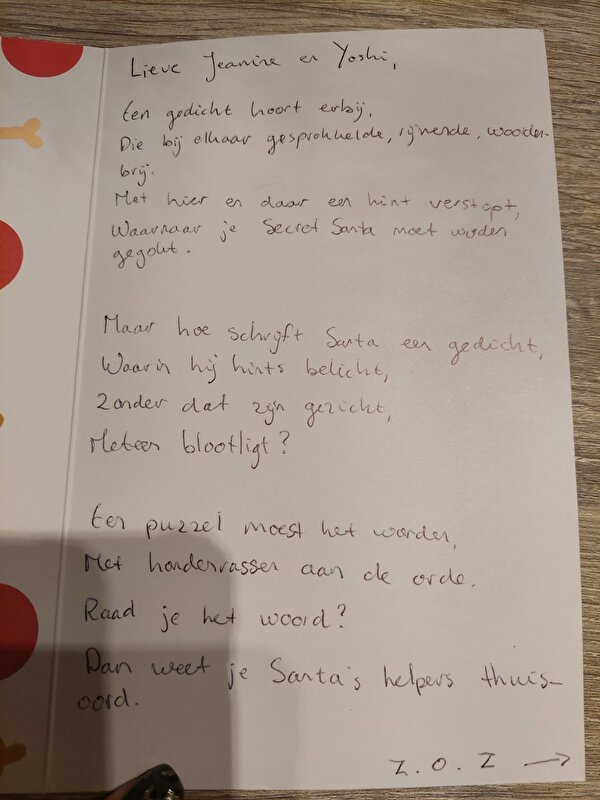 Lieve Jeanine en Yoshi,
Een gedicht hoort erbij,
Die bij elkaar gesprokkelde, rijmende, woorden-
brij.
Met hier en daar een hint verstopt,
Waarnaar je Secret Santa moet worden
gegokt.
Maar hoe schrijft Santa een gedicht,
Waarin hij hints belicht,
Zonder dat zijn gezicht,
Meteen blootligt?
Een puzzel moest het worden,
Met hondenrassen aan de orde.
Raad je het woord?
Dan weet je Santa's helpers thuis-
oord.
Z.O.Z →